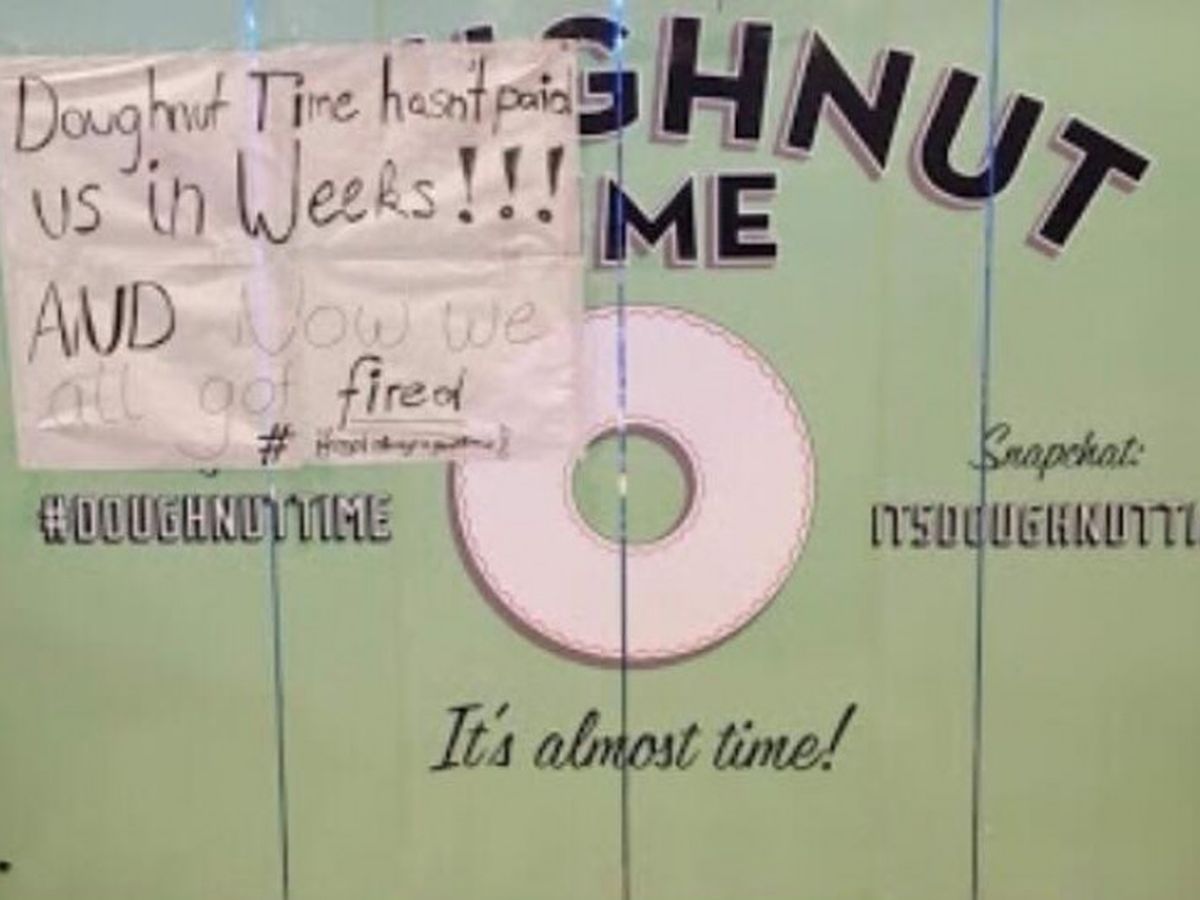 Doughnut Time hasn't paid
us in Weeks!!!
AND Now we
all got fired
#
GHNUT
ME
#DOUGHNUTTIME
Snapchat:
ITSDOUGHNUTTI
It's almost time!